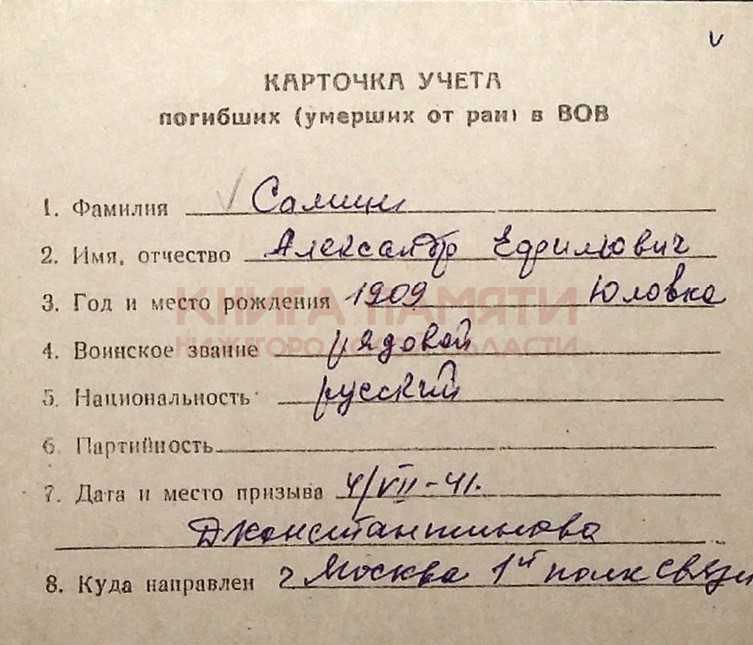 КАРТОЧКА УЧЕТА
погибших (умерших от ран) в ВОВ
1. Фамилия Самин
2. Имя, отчество Александр Ефимович
3. Год и место рождения 1909 Юловка
КНИГА ПАМЯТИ
НИЖЕГОРОДСКОЙ ОБЛАСТИ
4. Воинское звание рядовой
5. Национальность русский
6. Партийность
7. Дата и место призыва 4/VII-41.
Дконстантиново
8. Куда направлен г Москва 1й полк связи